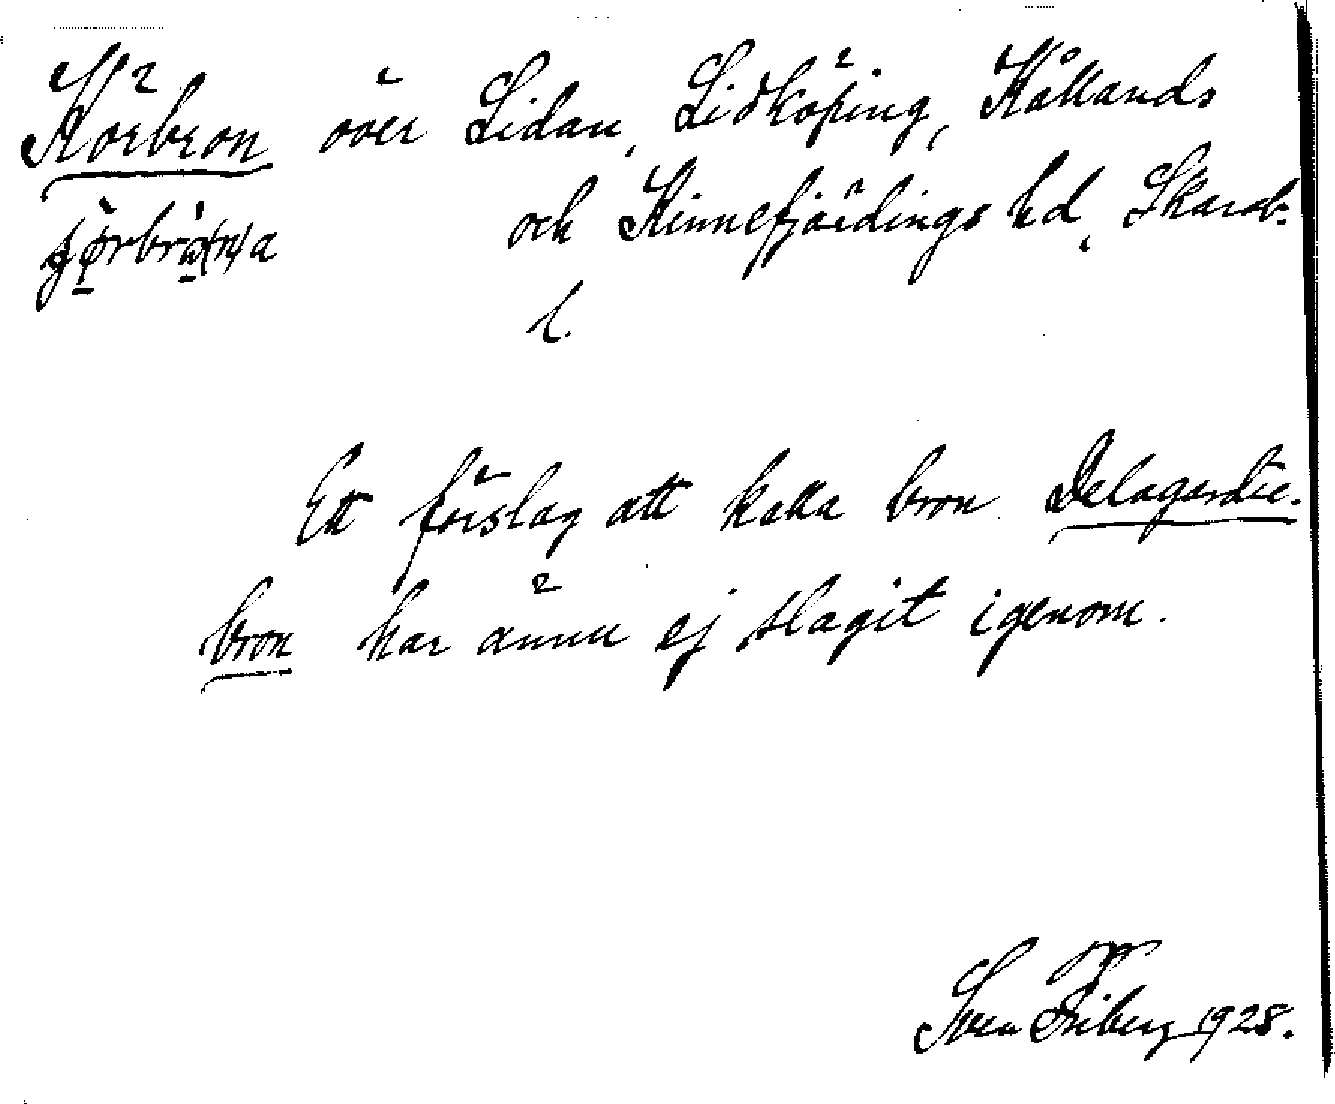 Körbron över Lidan, Lidköping, Kållands
och Kinnefjärdings hd, Skarab.
l.
Ett förslag att kalla bron Delagardie-
bron har ännu ej slagit igenom.
Sven Friberg 1928.